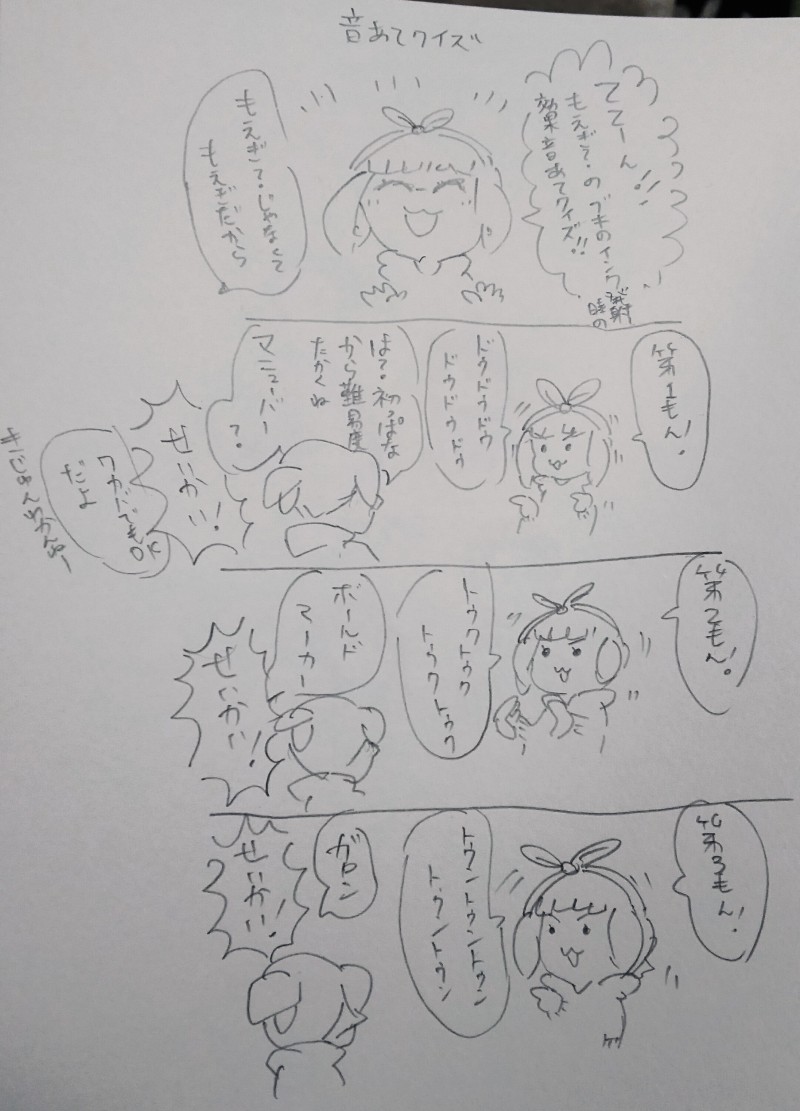 音あてクイズ
ててーん!!
もえぎて・のブキのインク発射時の
効果音あてクイズ!!
もえぎて・じゃなくて
もえぎだから
第1もん!
ドゥドゥドゥ
ドゥドゥドゥ
はて・初っぱな
から難易度
たかくね
マニューバー
?
せいかい!
ワカバでもOK
だよ
きじゅんわかんねー
第2もん!
トゥクトゥク
トゥクトゥク
ボールド
マーカー
せいかい!
第3もん!
トゥントゥントゥン
トゥントゥン
ガロン
せいかい!